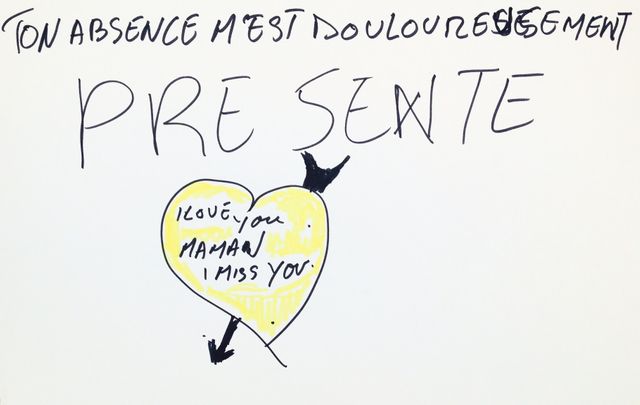 TON ABSENCE M'EST DOULOUREUSEMENT
PRESENTE
I LOVE you
MAMAN
I MISS YOU.